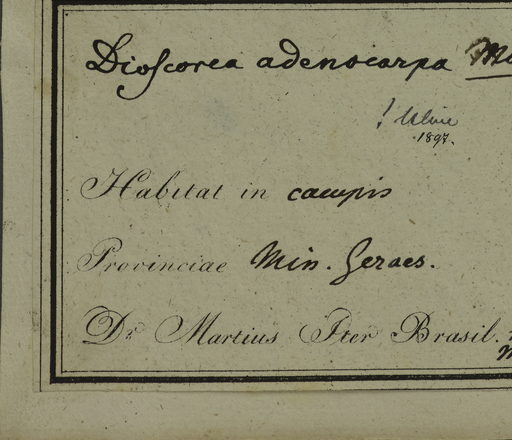 Dioscorea adenocarpa
! Uline
1897.
Habitat in campis
Provinciae Min. Geraes.
Dr. Martius Iter Brasil.